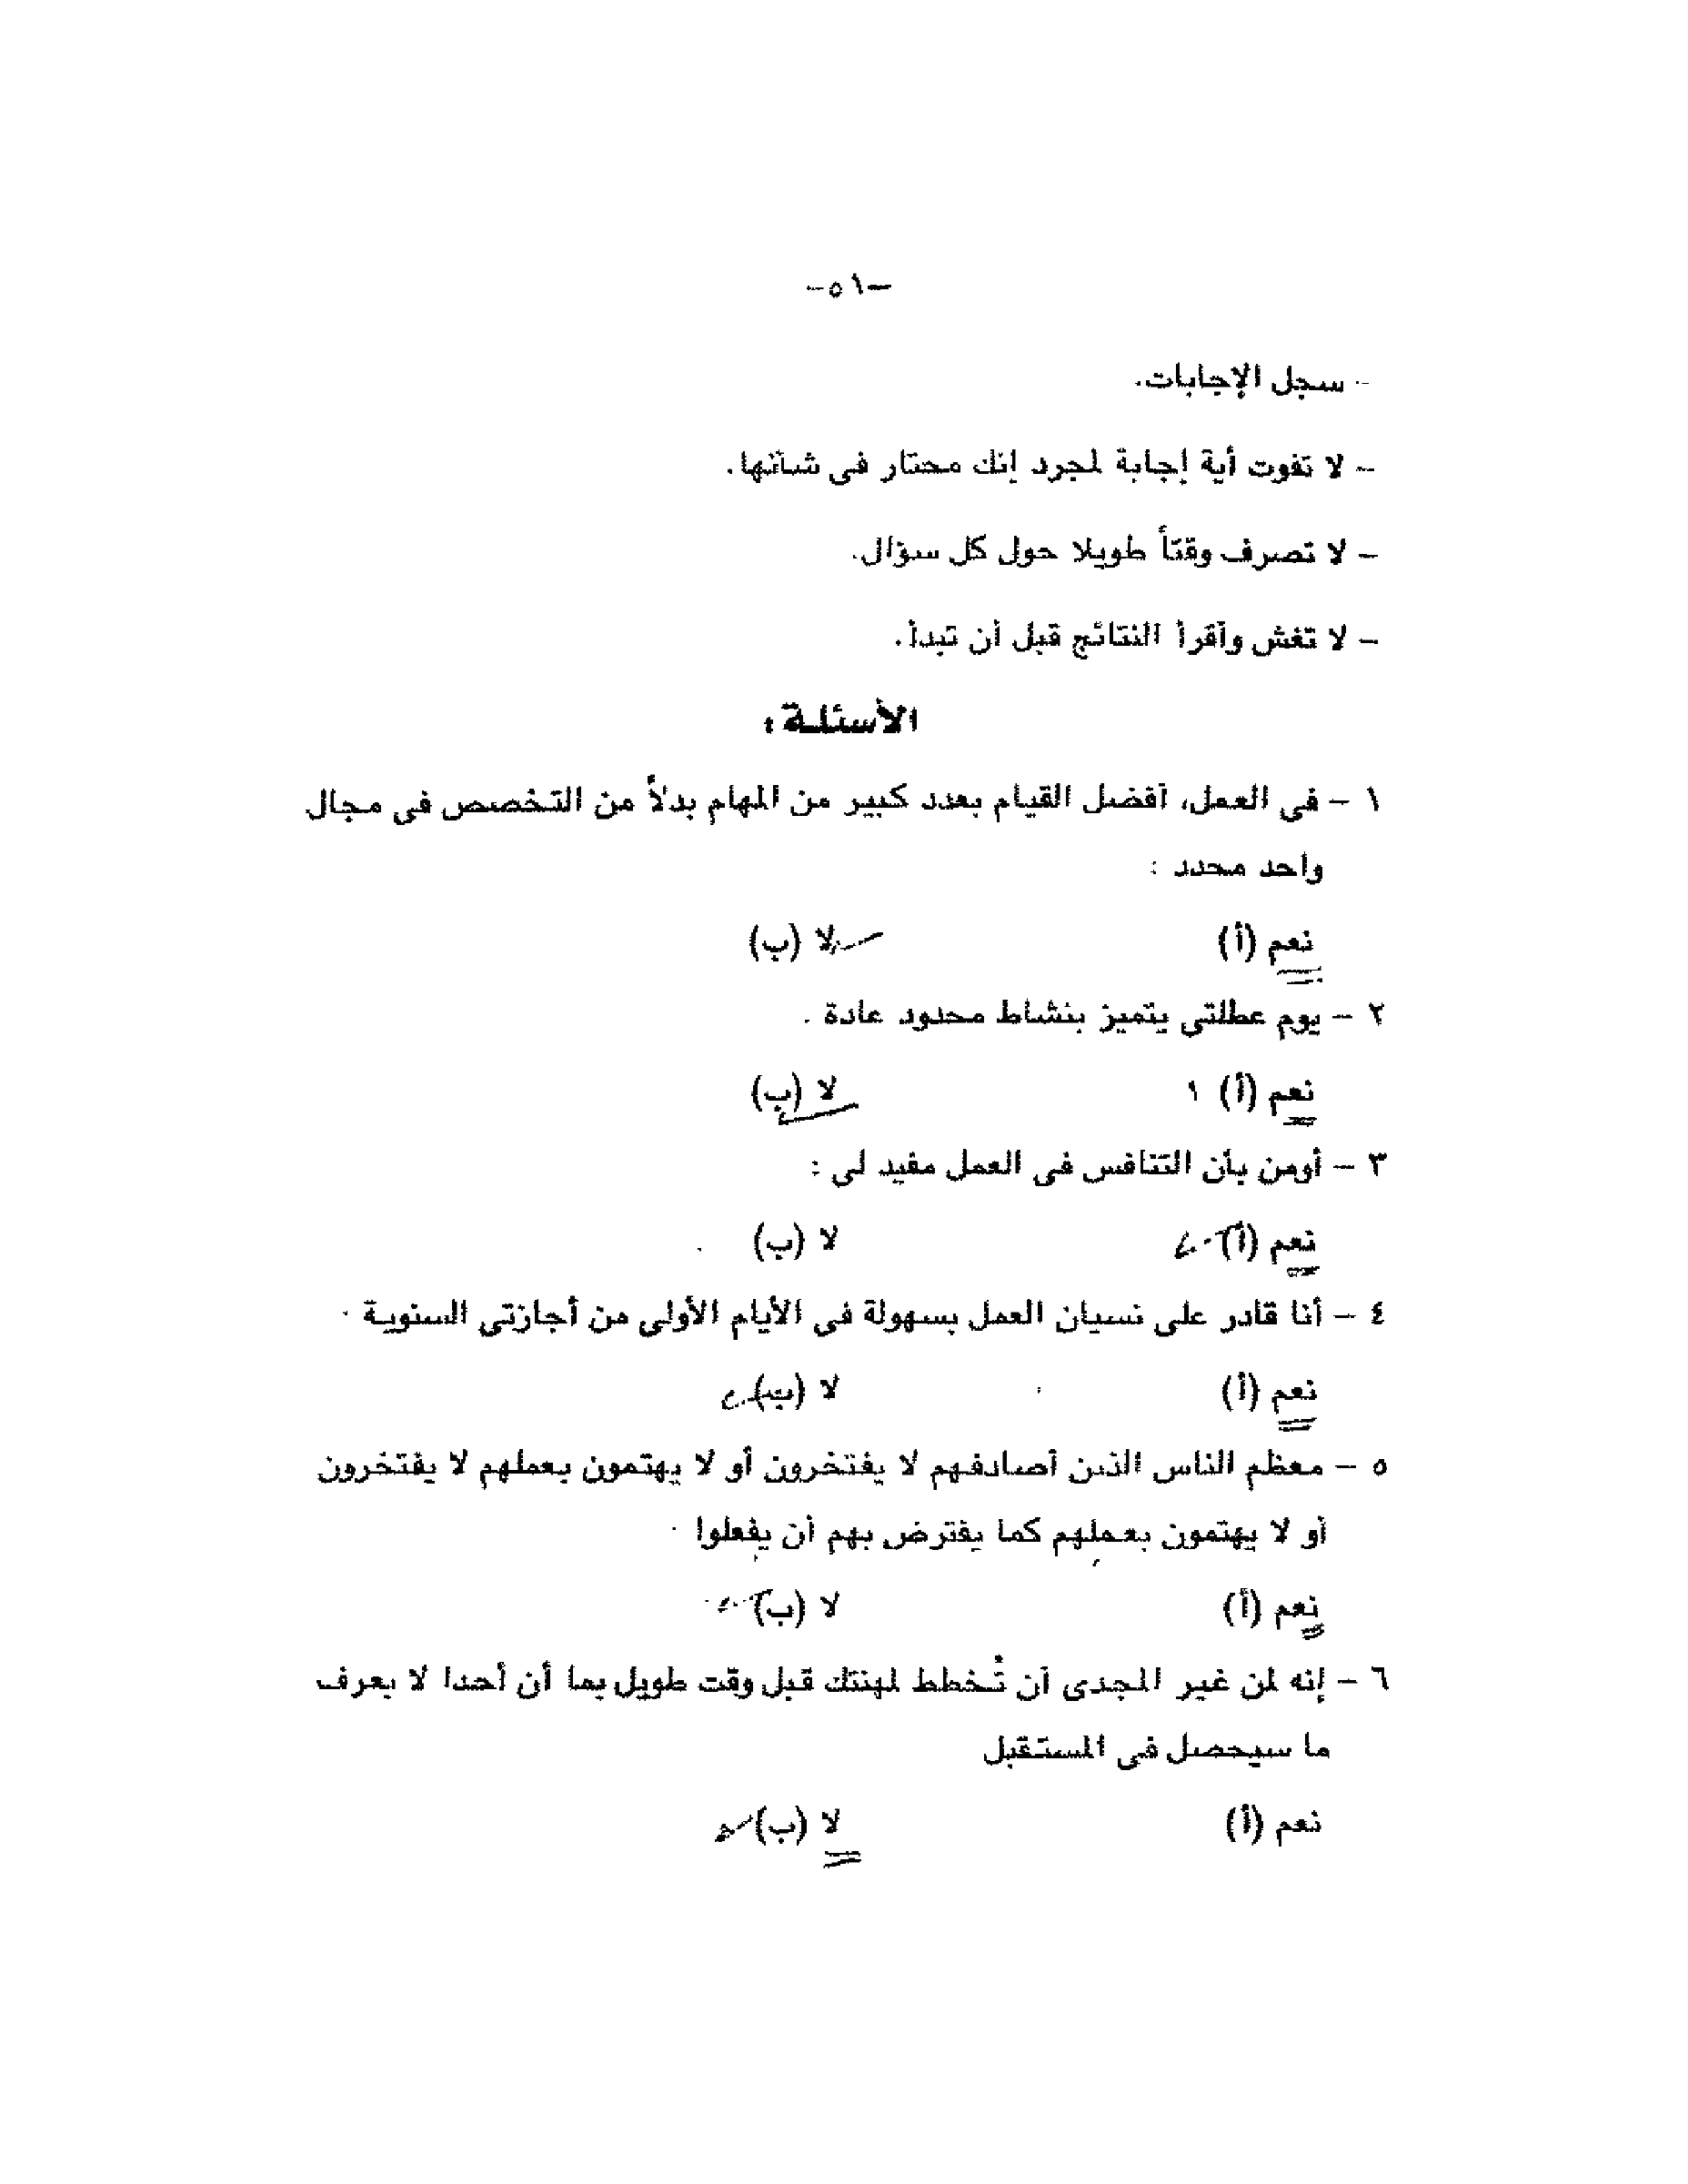 -٥١-
- سجل الإجابات.
- لا تفوت أية إجابة لمجرد إنك محتار فى شأنها.
- لا تصرف وقتاً طويلا حول كل سؤال.
- لا تغش وأقرأ النتائج قبل أن تبدأ.
الأسئلة :
١ - فى العمل، أفضل القيام بعدد كبير من المهام بدلاً من التخصص فى مجال
واحد محدد :
نعم (أ) لا (ب)
٢ - يوم عطلتى يتميز بنشاط محدود عادة .
نعم (أ) ١ لا (ب)
٣ - أومن بأن التنافس فى العمل مفيد لى :
نعم (أ) لا (ب)
٤ - أنا قادر على نسيان العمل بسهولة فى الأيام الأولى من أجازتى السنوية .
نعم (أ) لا (ب)
٥ - معظم الناس الذين أصادفهم لا يفتخرون أو لا يهتمون بعملهم لا يفتخرون
أو لا يهتمون بعملهم كما يفترض بهم أن يفعلوا .
نعم (أ) لا (ب)
٦ - إنه لمن غير المجدى أن تُخطط لمهنتك قبل وقت طويل بما أن أحدا لا يعرف
ما سيحصل فى المستقبل
نعم (أ) لا (ب)